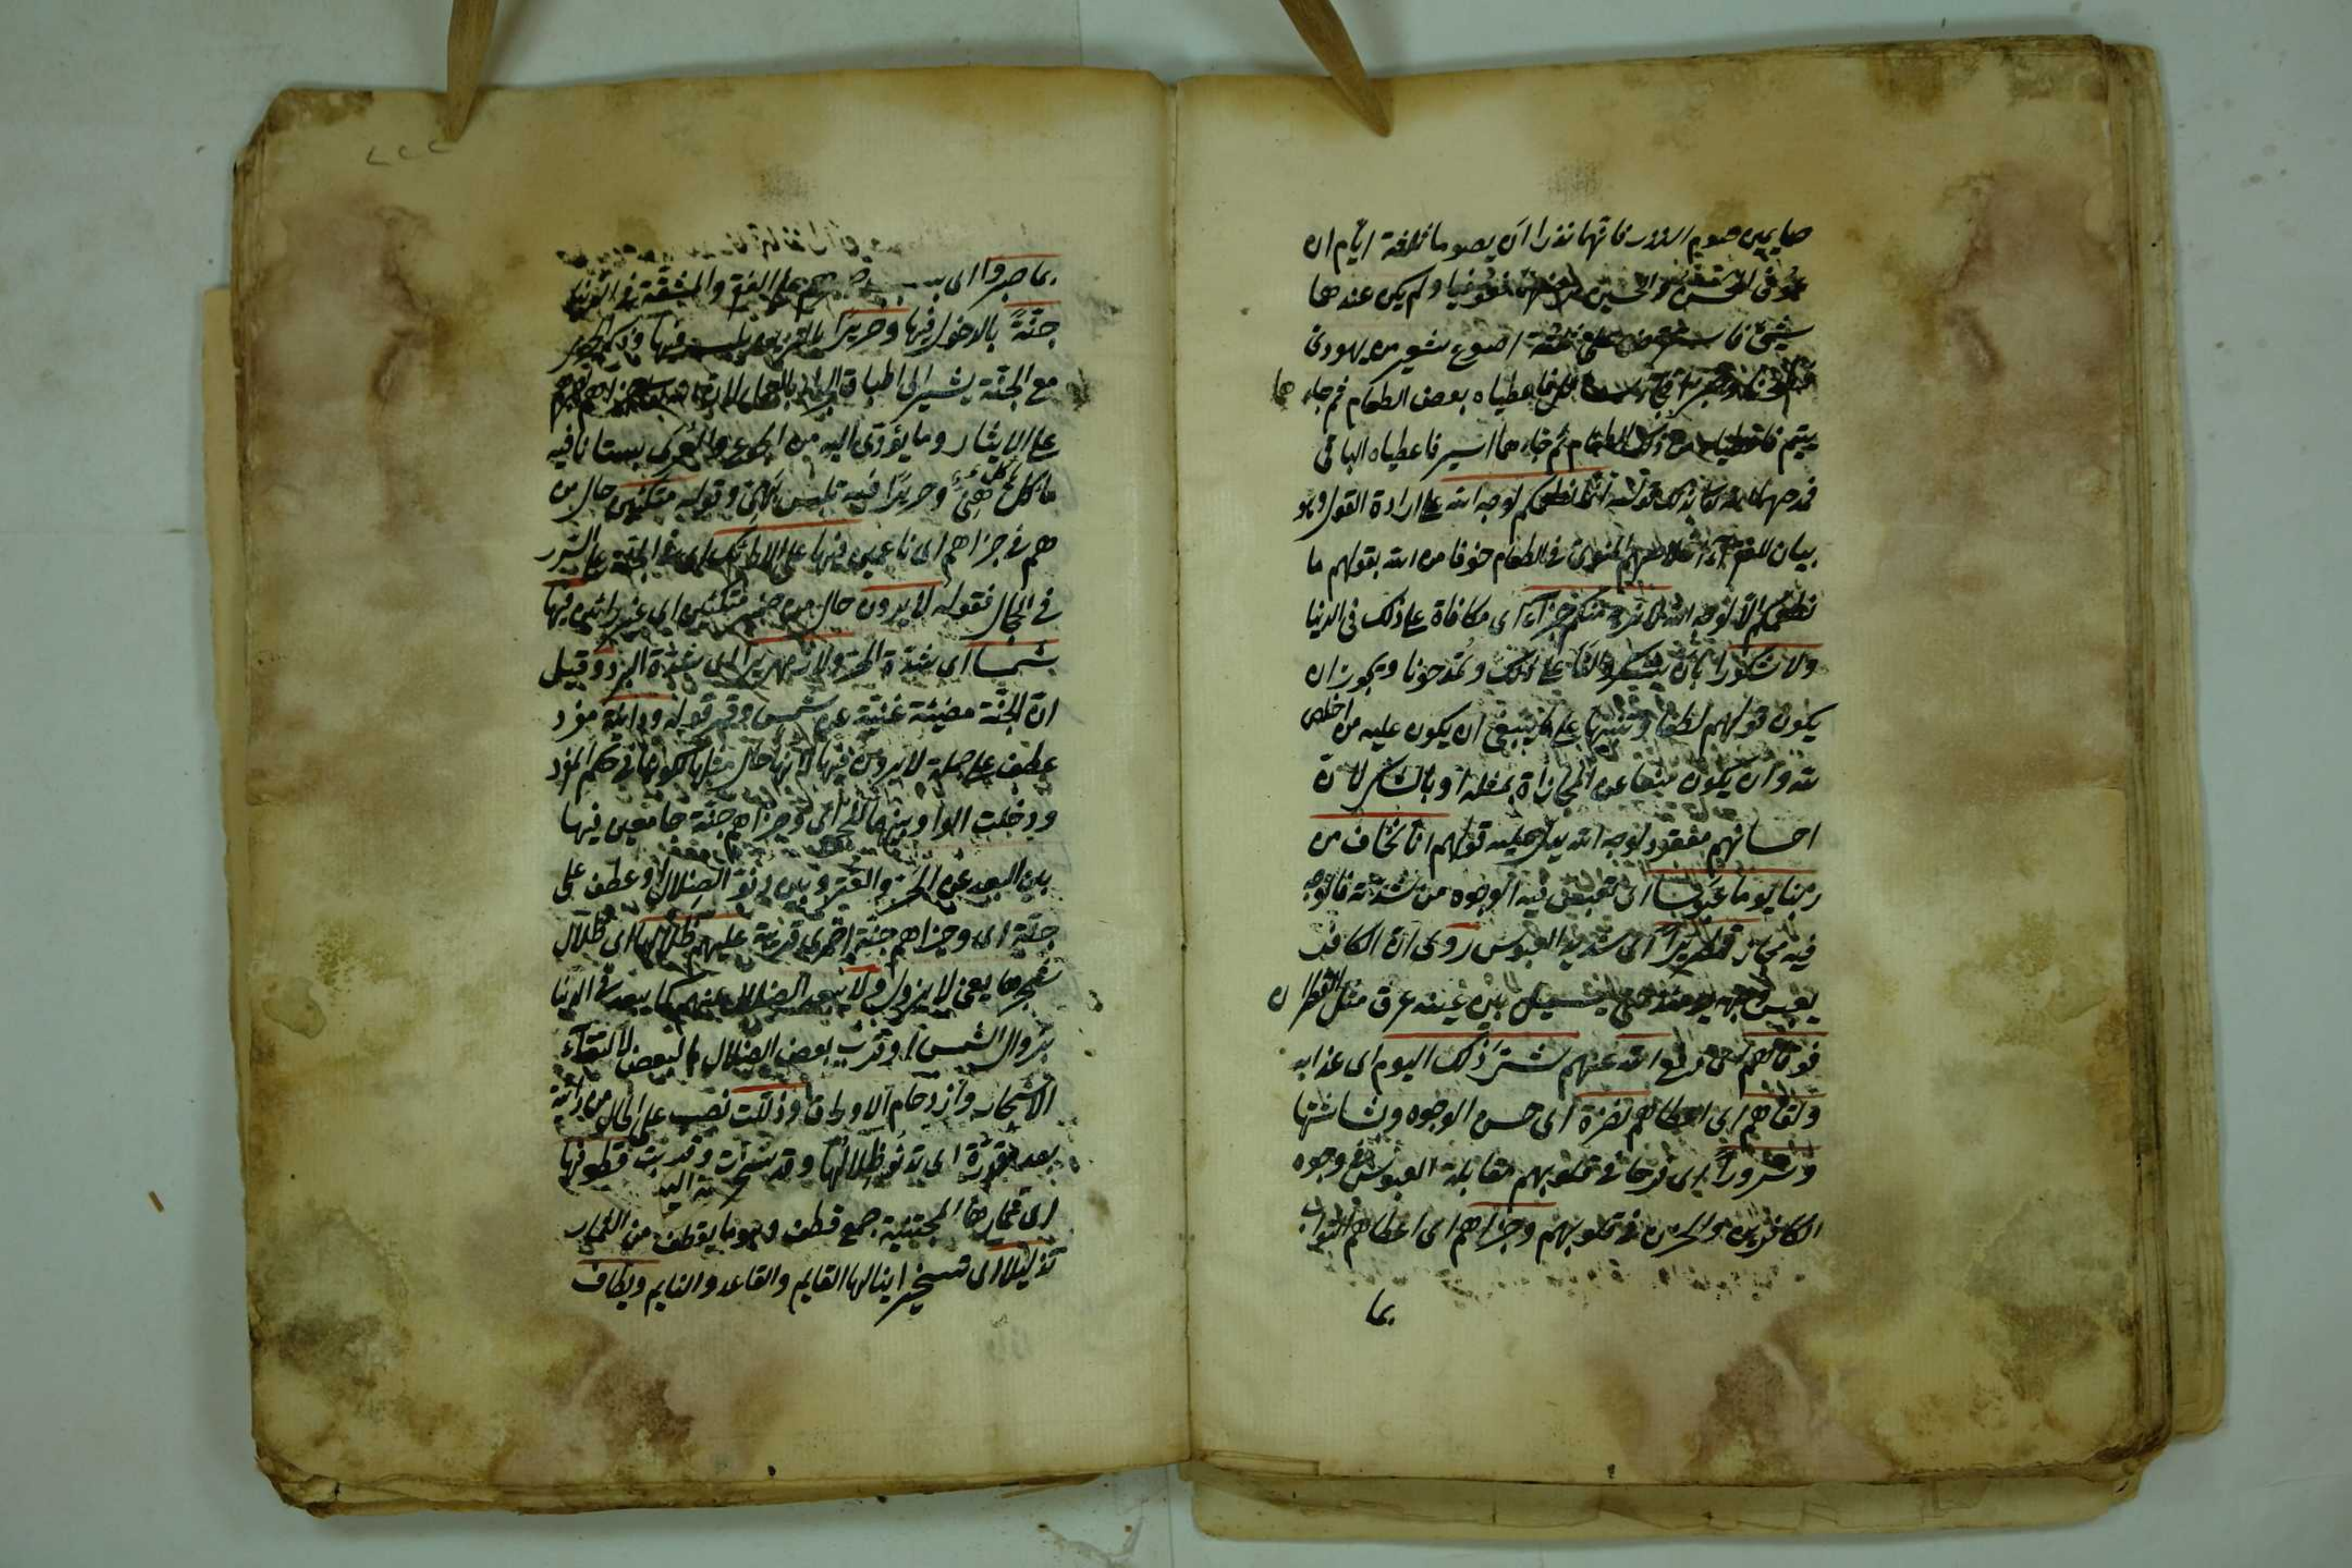 صايمين صوم النذر فانهما نذرا ان يصوما ثلاثة ايام ان
عوفى الحسن والحسين من مرضهما فعوفيا ولم يكن عندهما
شيئ فاستقرض على ثلثة اصوع شعير من يهودى
فاعطياه بعض الطعام ثم جاءهما
يتيم فاعطياه من ذلك الطعام ثم جاءهما اسير فاعطياه الباقى
فمدحهما الله تعالى بذلك قوله انما نطعمكم لوجه الله على ارادة القول وهو
بيان للفقراء فى الطعام خوفا من الله بقولهم ما
نطعمكم الا لوجه الله لا نريد منكم جزاء اى مكافاة على ذلك فى الدنيا
ولا شكورا بان يشكروا لنا على ذلك وتمدحونا ويجوز ان
يكون قولهم لطفا وتنبيها على ما ينبغى ان يكون عليه من اخلص
لله وان يكون منعا عن المجازاة بمثله او بالشكر لان
احسانهم مفقود لوجه الله يدل عليه قولهم انا نخاف من
ربنا يوما عبوسا اى تعبس فيه الوجوه من شدته فالوجه
فيه مجاز قمطريرا اى شديد العبوس روى ان الكافر
يعبس وجهه يومئذ حتى يسيل بين عينيه عرق مثل القطران
فوقاهم الله اى دفع الله عنهم شر ذلك اليوم اى عذابه
ولقاهم اى اعطاهم نضرة اى حسن الوجوه وبشاشتها
وسرورا اى فرحا فى قلوبهم مقابلة العبوس فى وجوه
الكافرين والحزن فى قلوبهم وجزاهم اى اعطاهم الثواب
بما
٢٢٢
بما صبروا اى بسبب صبرهم على الفقر والمشقة فى الدنيا
جنة بالدخول فيها وحريرا يلبسونه فيها وذكر الحرير
مع الجنة يشير الى اطباق
على الايثار وما يؤدى اليه من الجوع والعرى بستانا فيه
مأكل هنئ وحريرا فيه ملبس بهى وقوله متكئين حال من
هم فى جزاهم اى ناعمين فيها على الارائك اى فى الجنة على السرر
فى الحجال فقوله لا يرون حال من ضمير متكئين اى غير رائين فيها
شمسا اى شدة الحر ولا زمهريرا اى شدة البرد وقيل
ان الجنة مضيئة غنية عن شمس وقمر قوله ودانية مفرد
عطف على جملة لا يرون فيها لانها حال مثلها لكونها فى حكم المفرد
ودخلت الواو بينهما للجمع اى وجزاهم جنة جامعين فيها
بين البعد عن الحر والقر وبين دنو الضلال او عطف على
جنة اى وجزاهم جنة اخرى قريبة عليهم ظلالها اى ظلال
شجرها يعنى لا يزول ولا يبعد الضلال عنهم كما يبعد فى الدنيا
بزوال الشمس او قرب بعض الضلال البعض لالتقاء
الاشجار وازدحام الاوراق وذللت نصب على الحال من دانية
بعد اى تدنو ظلالها وقد سخرت وقدبت قطوفها
اى ثمارها المجتنية جمع قطف وهو ما يقطف من الثمار
تذليلا اى تسخيرا ينالها القايم والقاعد والنايم ويطاف